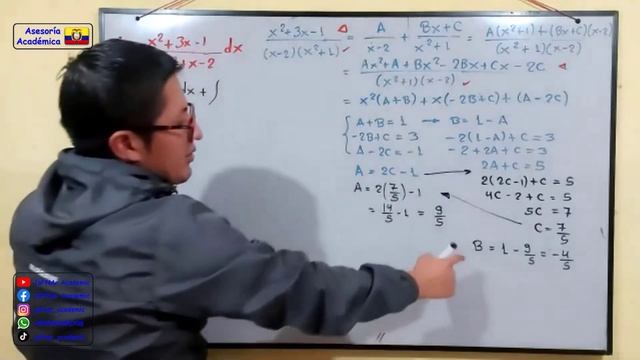 Asesoría
Académica
x²+3x-1
+x-2
dx
dx + ∫
x²+3x-1 / (x-2)(x²+1) = A / x-2 + Bx+C / x²+1 = A(x²+1)+(Bx+C)(x-2) / (x²+1)(x-2)
= Ax²+A+Bx²-2Bx+Cx-2C / (x²+1)(x-2)
= x²(A+B)+x(-2B+C)+(A-2C)
A+B=1 → B=1-A
-2B+C=3 -2(1-A)+C=3
A-2C=-1 -2+2A+C=3
A=2C-1 2A+C=5
2(2C-1)+C=5
A=2(7/5)-1 4C-2+C=5
=14/5-1=9/5 5C=7
C=7/5
B=1-9/5=-4/5